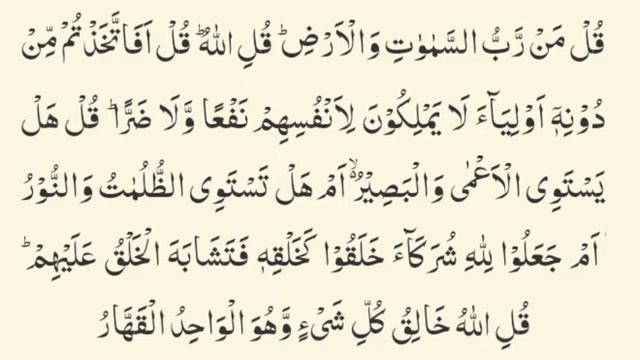 قُلْ مَنْ رَّبُّ السَّمٰوٰتِ وَالْاَرْضِ ؕ قُلِ اللّٰهُ ؕ قُلْ اَفَاتَّخَذْتُمْ مِّنْ
دُوْنِهٖۤ اَوْلِيَآءَ لَا يَمْلِكُوْنَ لِاَنْفُسِهِمْ نَفْعًا وَّلَا ضَرًّا ؕ قُلْ هَلْ
يَسْتَوِى الْاَعْمٰى وَالْبَصِيْرُ ۙ اَمْ هَلْ تَسْتَوِى الظُّلُمٰتُ وَالنُّوْرُ
اَمْ جَعَلُوْا لِلّٰهِ شُرَكَآءَ خَلَقُوْا كَخَلْقِهٖ فَتَشَابَهَ الْخَلْقُ عَلَيْهِمْ ؕ
قُلِ اللّٰهُ خَالِقُ كُلِّ شَىْءٍ وَّهُوَ الْوَاحِدُ الْقَهَّارُ